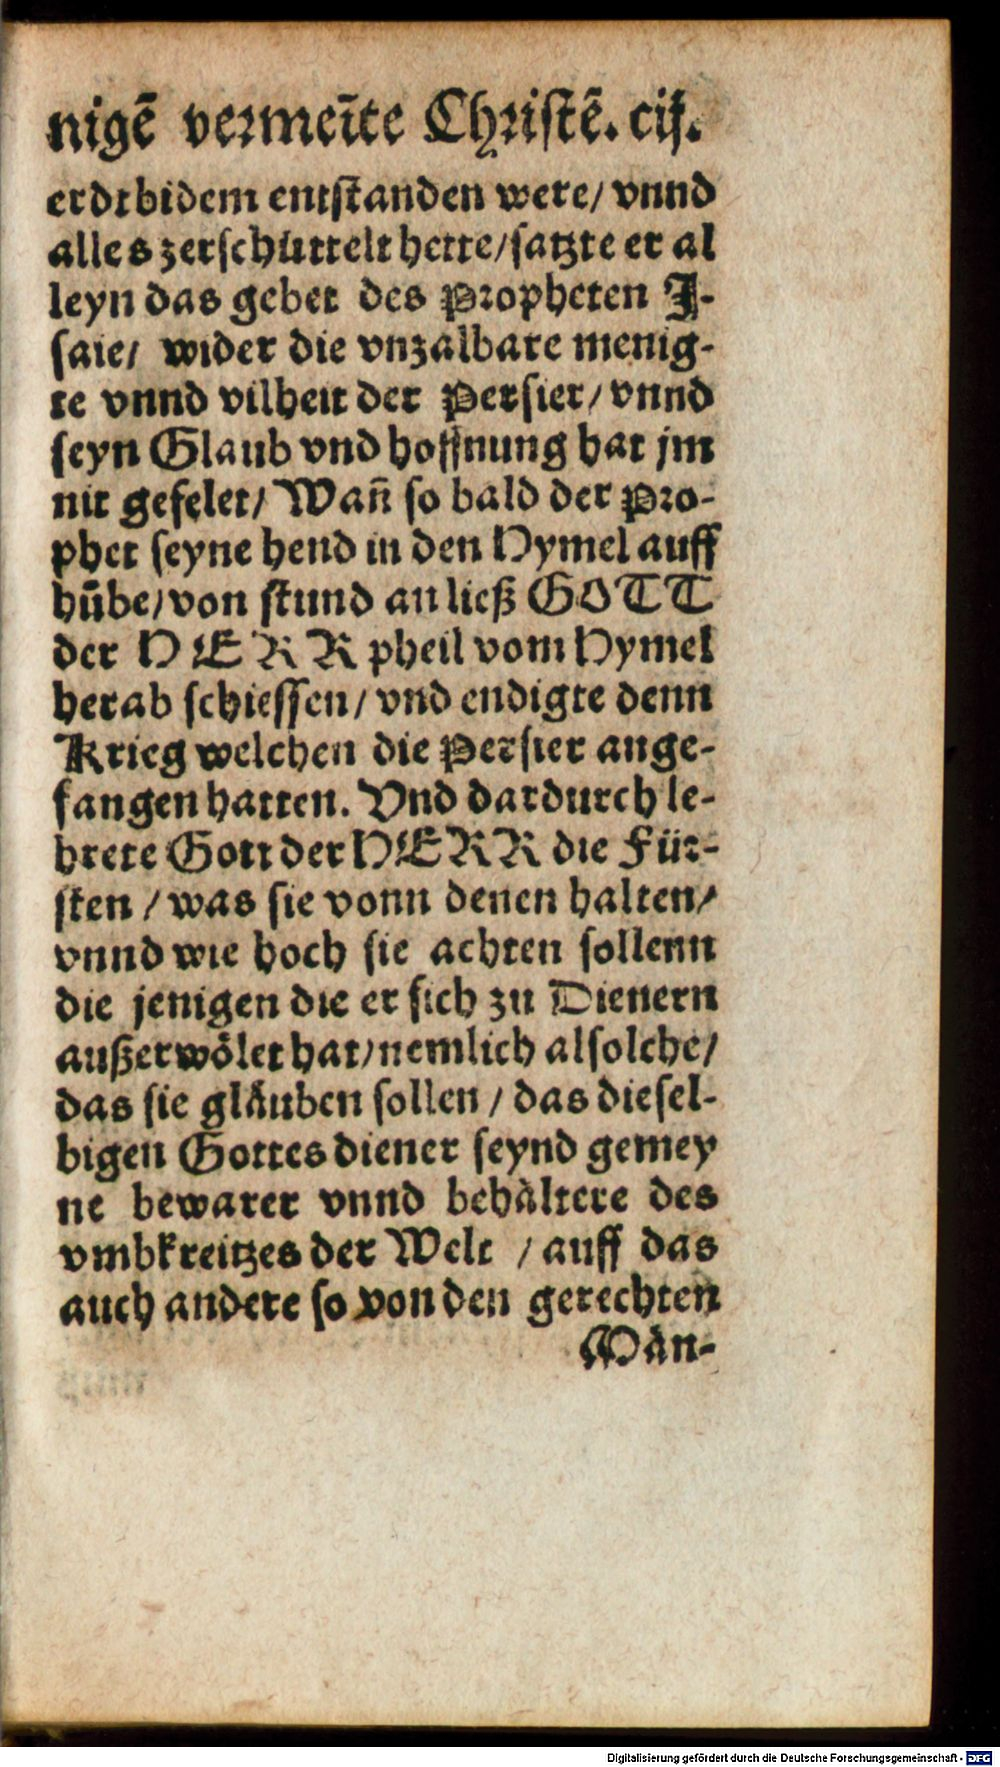 nigẽ vermeīte Christẽ. cij.
erdtbidem entstanden were/ vnnd
alles zerschüttelt hette/satzte er al
leyn das gebet des Propheten J-
saie/ wider die vnzalbare menig-
te vnnd vilheit der Persier/ vnnd
seyn Glaub vnd hoffnung hat jm
nit gefelet/ Wañ so bald der Pro-
phet seyne hend in den Hymel auff
hůbe/von stund an ließ GOTT
der HERR pheil vom Hymel
herab schiessen/ vnd endigte denn
Krieg welchen die Persier ange-
fangen hatten. Vnd dardurch le-
hrete Gott der HERR die Für-
sten / was sie vonn denen halten/
vnnd wie hoch sie achten sollenn
die jenigen die er sich zu Dienern
außerwölet hat/nemlich alsolche/
das sie gläuben sollen / das diesel-
bigen Gottes diener seynd gemey
ne bewarer vnnd behältere des
vmbkreitzes der Welt / auff das
auch andere so von den gerechten
Män-
Digitalisierung gefördert durch die Deutsche Forschungsgemeinschaft - DFG